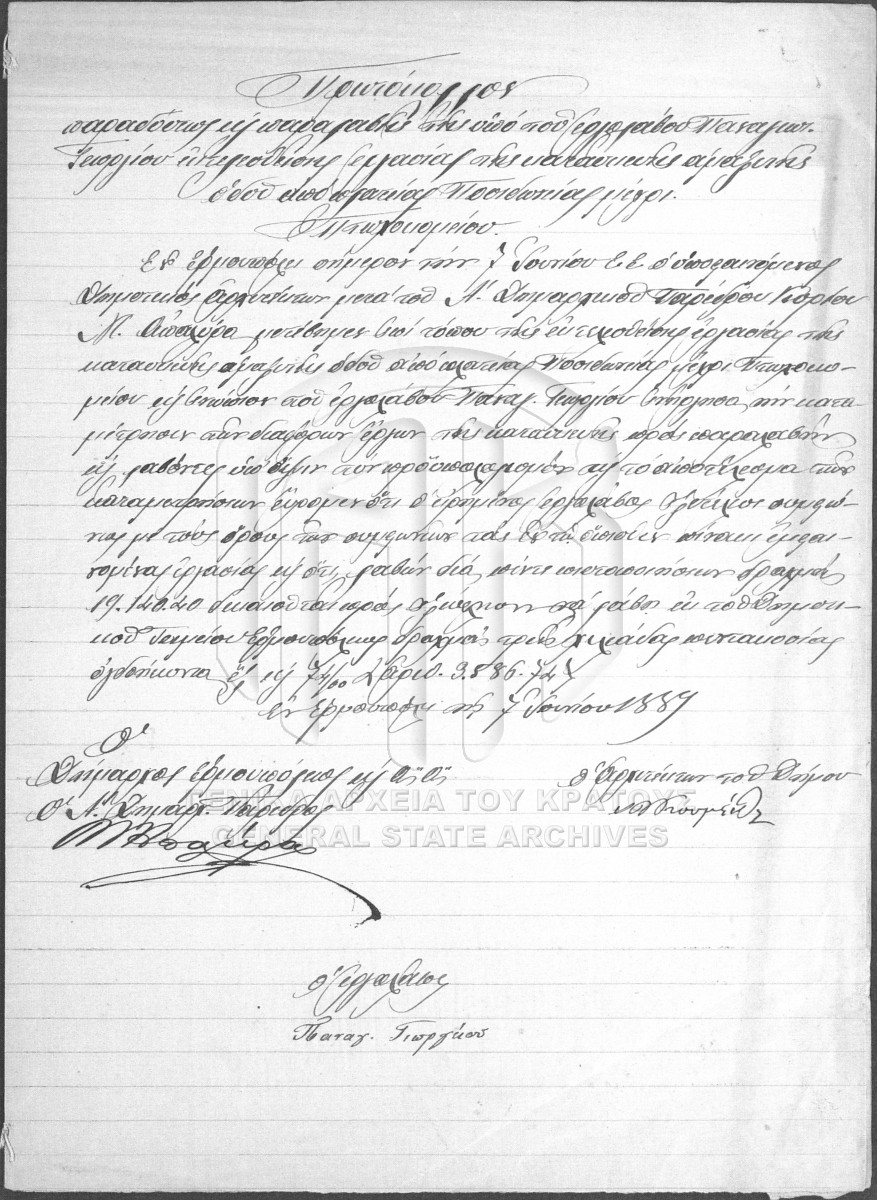 Πρωτόκολλον
παραδόσεως καὶ παραλαβῆς τῆς ὑπὸ τοῦ ἐργολάβου Παναγιωτ.
Γεωργίου ἐκτελεσθείσης ἐργασίας τῆς κατασκευῆς ἁμαξιτῆς
ὁδοῦ ἀπὸ πλατείας Ποσιδωνίας μέχρι
Πτωχοκομείου.
Ἐν Ἑρμουπόλει σήμερον τὴν 7 Ἰουνίου ἔ. ἔ. ὁ ὑποφαινόμενος
Δημοτικὸς Ἀρχιτέκτων μετὰ τοῦ Α΄. Δημαρχικοῦ Παρέδρου Κυρίου
Μ. μετέβημεν ἐπὶ τόπου τῆς ἐκτελεσθείσης ἐργασίας τῆς
κατασκευῆς ἁμαξιτῆς ὁδοῦ ἀπὸ πλατείας Ποσιδωνίας μέχρι Πτωχοκο-
μείου καὶ ἐνώπιον τοῦ ἐργολάβου Παναγ. Γεωργίου ἐνήργησα τὴν κατα-
μέτρησιν τῶν διαφόρων ἔργων τῆς κατασκευῆς πρὸς παραλαβὴν
καὶ λαβόντες ὑπ' ὄψιν τὸν προϋπολογισμὸν καὶ τὸ ἀποτέλεσμα τῶν
καταμετρήσεων εὕρομεν ὅτι ὁ εἰρημένος ἐργολάβος ἐξετέλεσε συμφώ-
νως μὲ τοὺς ὅρους τῶν συμφωνιῶν τὰς ἐν τῷ ὄπισθεν πίνακι ἐμφαι-
νομένας ἐργασίας καὶ ὅτι λαβὼν διὰ πέντε πιστοποιήσεων δραχμὰς
19.120.20 δικαιοῦται πρὸς ἐξόφλησιν νὰ λάβῃ ἐκ τοῦ Δημοτι-
κοῦ Ταμείου Ἑρμουπόλεως δραχμὰς τρεῖς χιλιάδας πεντακοσίας
ὀγδοήκοντα ἓξ καὶ 74/00 (ἀριθ. 3.586.74)
Ἐν Ἑρμουπόλει τῇ 7 Ἰουνίου 1889
Ὁ
Δήμαρχος Ἑρμουπόλεως καὶ
Ὁ Α΄ Δημαρ. Πάρεδρος
ὁ Ἀρχιτέκτων τοῦ Δήμου
ὁ Ἐργολάβος
Παναγ. Γιωργίου
ΓΕΝΙΚΑ ΑΡΧΕΙΑ ΤΟΥ ΚΡΑΤΟΥΣ
GENERAL STATE ARCHIVES